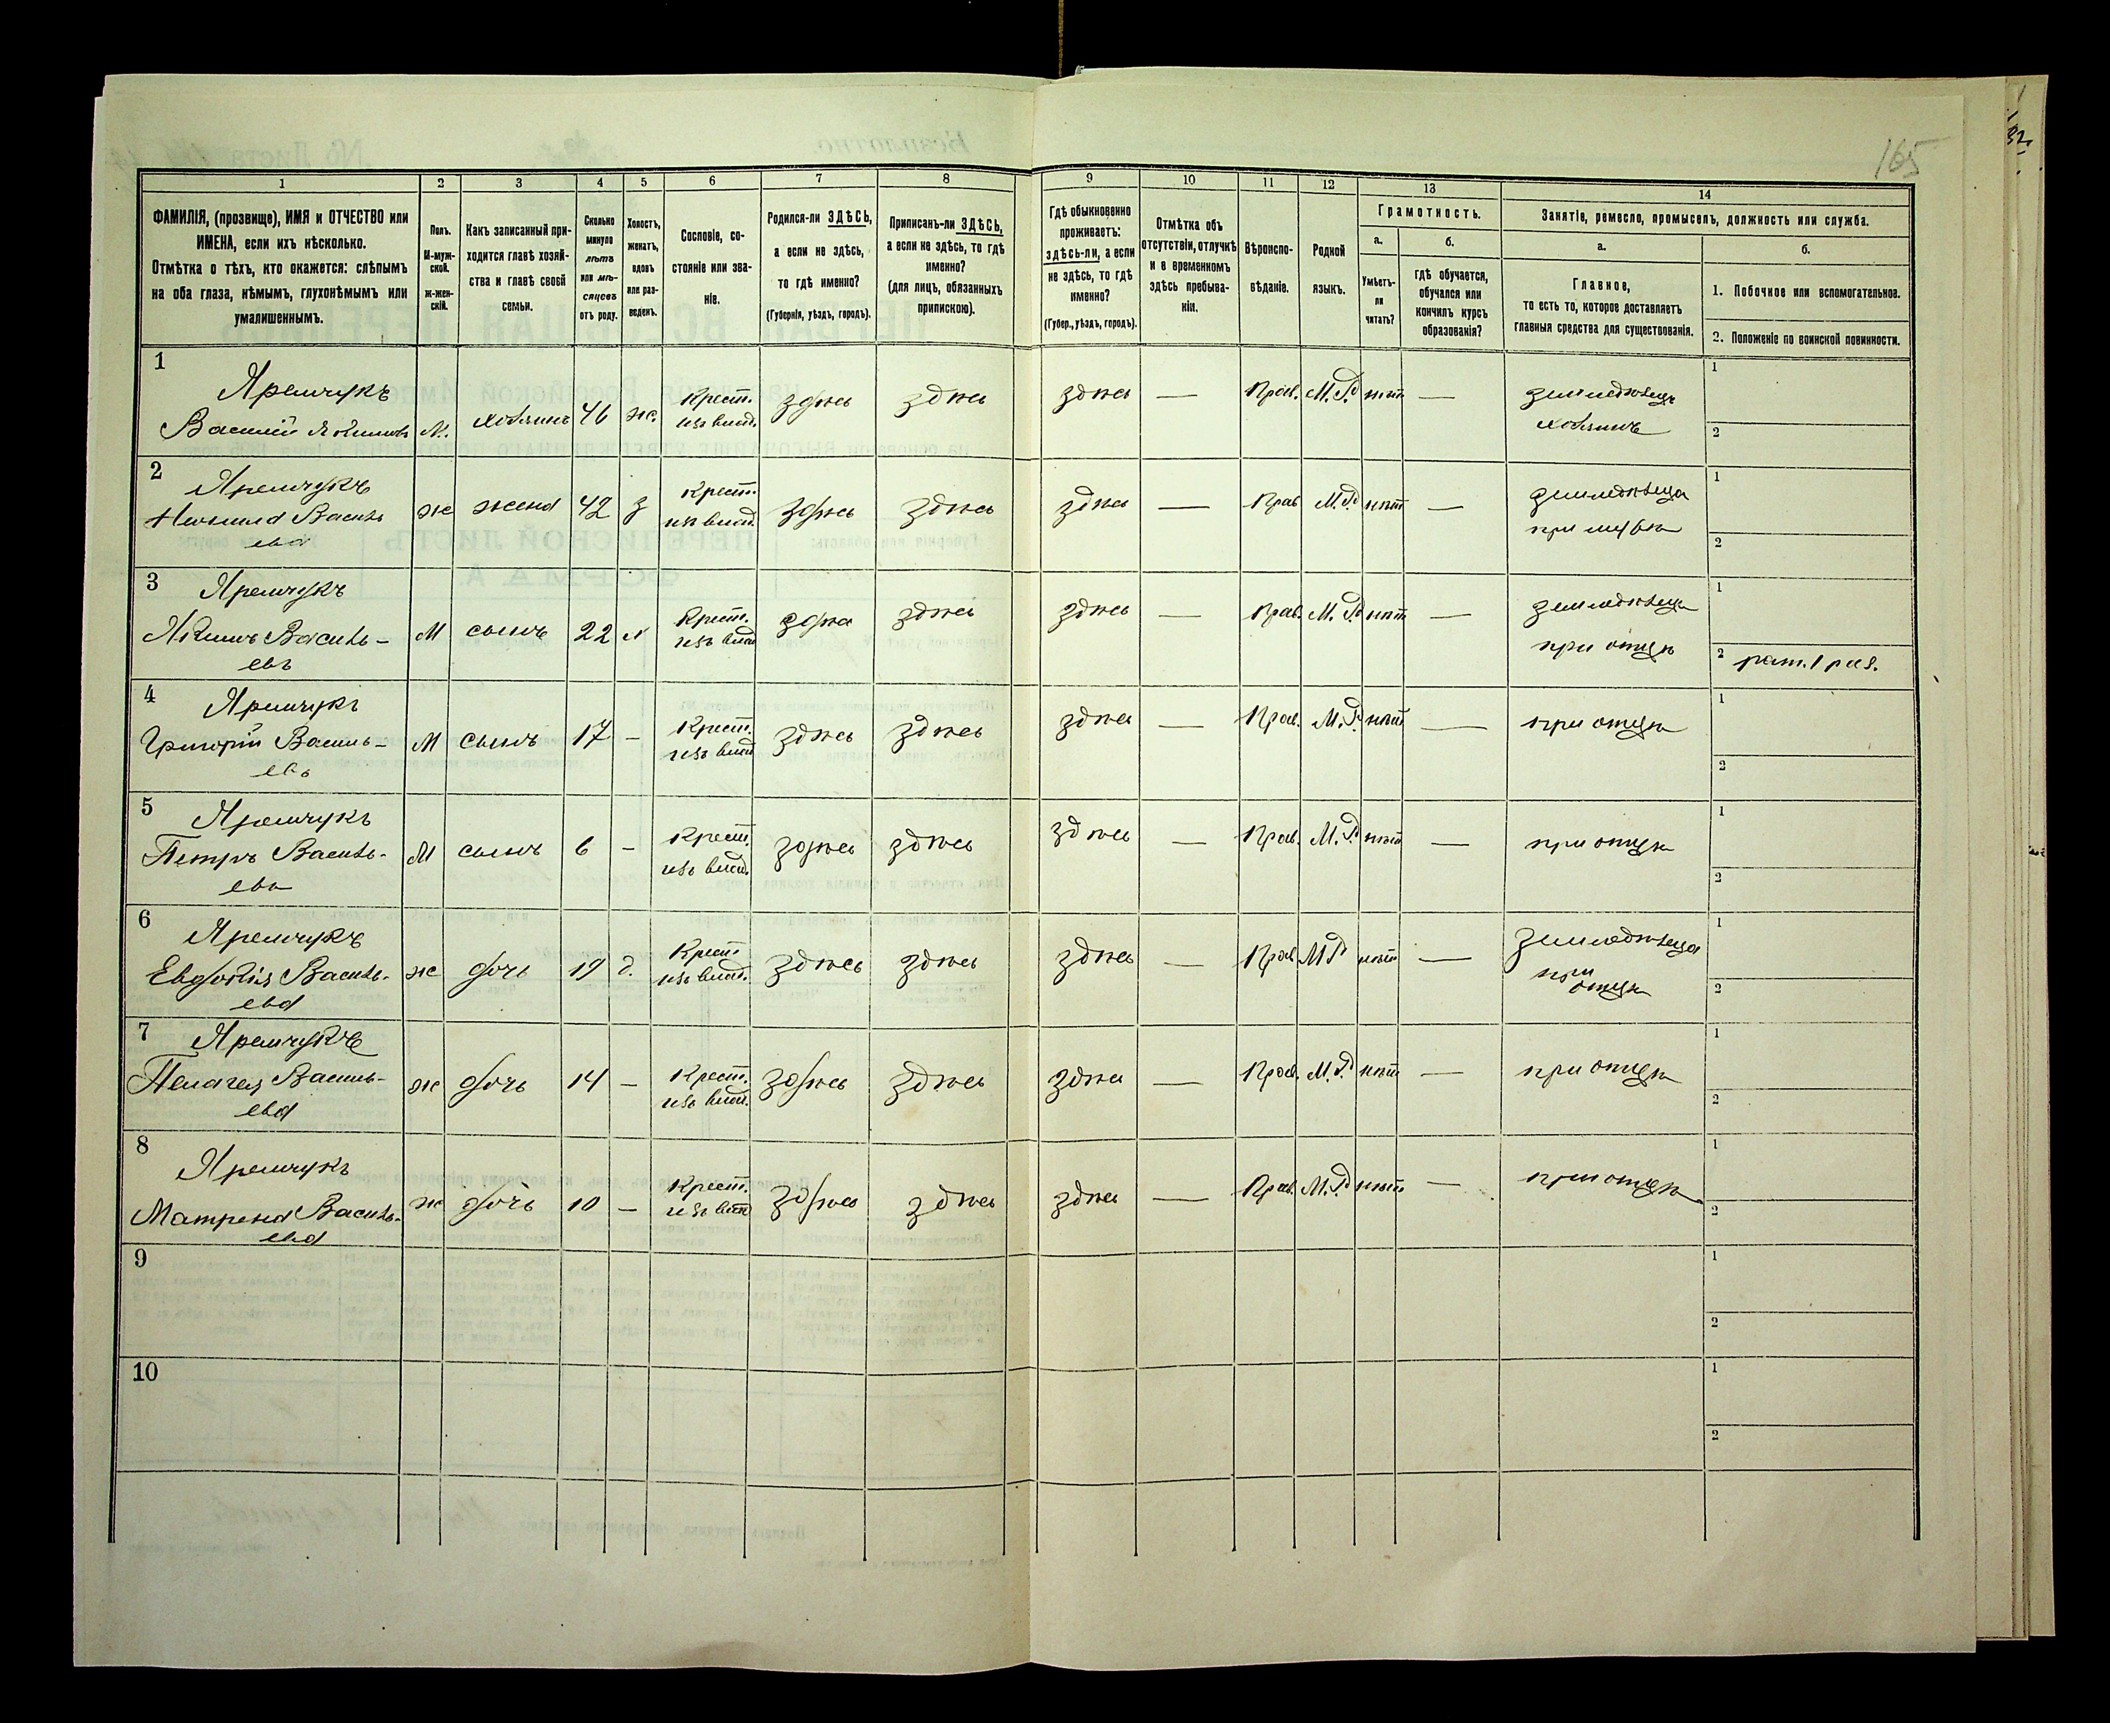 165
1 2 3 4 5 6 7 8 9 10 11 12 13 14
ФАМИЛІЯ, (прозвище), ИМЯ и ОТЧЕСТВО или
ИМЕНА, если ихъ нѣсколько.
Отмѣтка о тѣхъ, кто окажется: слѣпымъ
на оба глаза, нѣмымъ, глухонѣмымъ или
умалишеннымъ.
Полъ.
М-муж-
ской.
ж-жен-
скій.
Какъ записанный при-
ходится главѣ хозяй-
ства и главѣ своей
семьи.
Сколько
минуло
лѣтъ
или мѣ-
сяцевъ
отъ роду.
Холостъ,
женатъ,
вдовъ
или раз-
веденъ.
Сословіе, со-
стояніе или зва-
ніе.
Родился-ли ЗДѢСЬ,
а если не здѣсь,
то гдѣ именно?
(Губернія, уѣздъ, городъ).
Приписанъ-ли ЗДѢСЬ,
а если не здѣсь, то гдѣ
именно?
(для лицъ, обязанныхъ
припискою).
Гдѣ обыкновенно
проживаетъ:
здѣсь-ли, а если
не здѣсь, то гдѣ
именно?
(Губер., уѣздъ, городъ).
Отмѣтка объ
отсутствіи, отлучкѣ
и о временномъ
здѣсь пребыва-
ніи.
Вѣроиспо-
вѣданіе.
Родной
языкъ.
Грамотность.
а.
Умѣетъ-
ли
читать?
б.
гдѣ обучается,
обучался или
кончилъ курсъ
образованія?
Занятіе, ремесло, промыселъ, должность или служба.
а.
Главное,
то есть то, которое доставляетъ
главныя средства для существованія.
б.
1. Побочное или вспомогательное.
2. Положеніе по воинской повинности.
1
Яремчукъ
Василій Якимовъ М. хозяинъ 46 ж. Крест. изъ влад. здѣсь здѣсь здѣсь — Прав. М.Р. нѣтъ — земледѣлецъ
хозяинъ
1
2
2
Яремчукъ
Василь- ж жена 42 з Крест. изъ влад. здѣсь здѣсь здѣсь — Прав М.Р. нѣтъ — земледѣлица
ева
при мужѣ
1
2
3
Яремчукъ
Якимъ Василь- М сынъ 22 Крест. изъ влад здѣсь здѣсь здѣсь — Прав. М.Р. нѣтъ — земледѣлецъ
евъ
при отцѣ
1
2 рат. 1 раз.
4
Яремчукъ
Григорій Василь- М сынъ 17 — Крест. изъ влад здѣсь здѣсь здѣсь — Прав. М.Р. нѣтъ — при отцѣ
евъ
1
2
5
Яремчукъ
Петръ Василь- М сынъ 6 — Крест. изъ влад. здѣсь здѣсь здѣсь — Прав. М.Р. нѣтъ — при отцѣ
евъ
1
2
6
Яремчукъ
Евдокія Василь- ж дочь 19 д. Крест изъ влад. здѣсь здѣсь здѣсь — Прав М Р нѣтъ — земледѣлица
ева
при
отцѣ
1
2
7
Яремчукъ
Пелагея Василь- ж дочь 14 — Крест. изъ влад. здѣсь здѣсь здѣсь — Прав. М.Р. нѣтъ — при отцѣ
ева
1
2
8
Яремчукъ
Матрена Василь- ж дочь 10 — Крест. изъ влад здѣсь здѣсь здѣсь — Прав. М.Р. нѣтъ — при отцѣ
ева
1
2
9
1
2
10
1
2